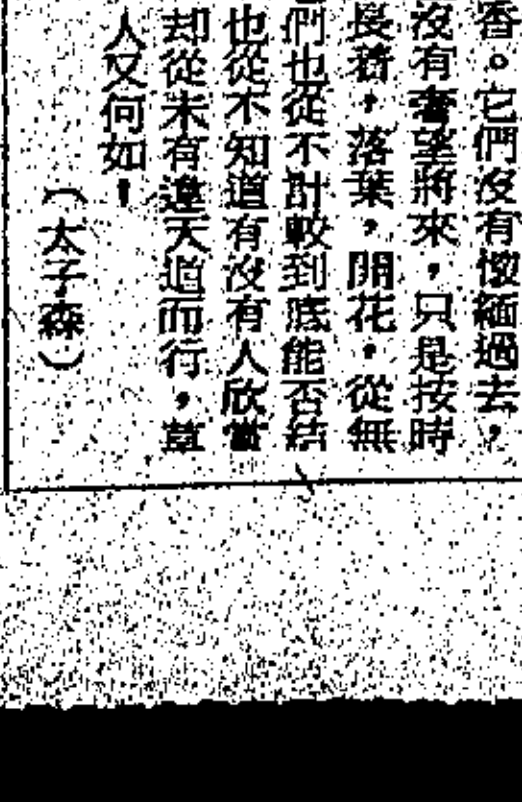 香。它們沒有懷緬過去,
沒有奢望將來,只是按時
長着,落葉,開花,從無
們也從不計較到底能否結
也從不知道有沒有人欣賞
却從未有違天道而行,草
人又何如!
(太子森)